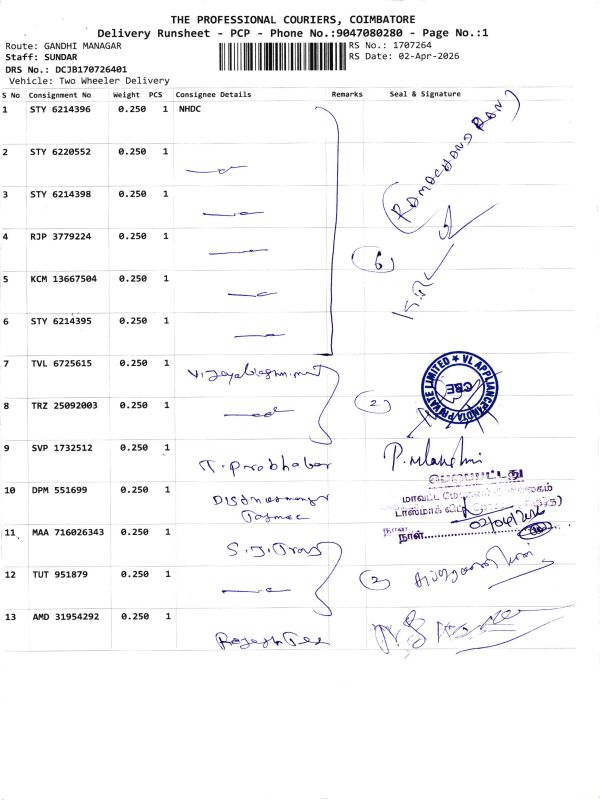 THE PROFESSIONAL COURIERS, COIMBATORE
Delivery Runsheet - PCP - Phone No.:9047080280 - Page No.:1
Route: GANDHI MANAGAR
RS No.: 1707264
Staff: SUNDAR
RS Date: 02-Apr-2026
DRS No.: DCJB170726401
Vehicle: Two Wheeler Delivery
S No Consignment No Weight PCS Consignee Details Remarks Seal & Signature
1 STY 6214396 0.250 1 NHDC
2 STY 6220552 0.250 1
(RAMACHANDRAN)
3 STY 6214398 0.250 1
4 RJP 3779224 0.250 1
6
5 KCM 13667504 0.250 1
6 STY 6214395 0.250 1
7 TVL 6725615 0.250 1
VL APPLIANCE INDIA PRIVATE LIMITED
CBE
8 TRZ 25092003 0.250 1
2
9 SVP 1732512 0.250 1
T. Prabhakar
10 DPM 551699 0.250 1
மாவட்ட
Tasmac
நாள்
02/04/2026
11 MAA 716026343 0.250 1
12 TUT 951879 0.250 1
2
13 AMD 31954292 0.250 1
Rajesh Tex